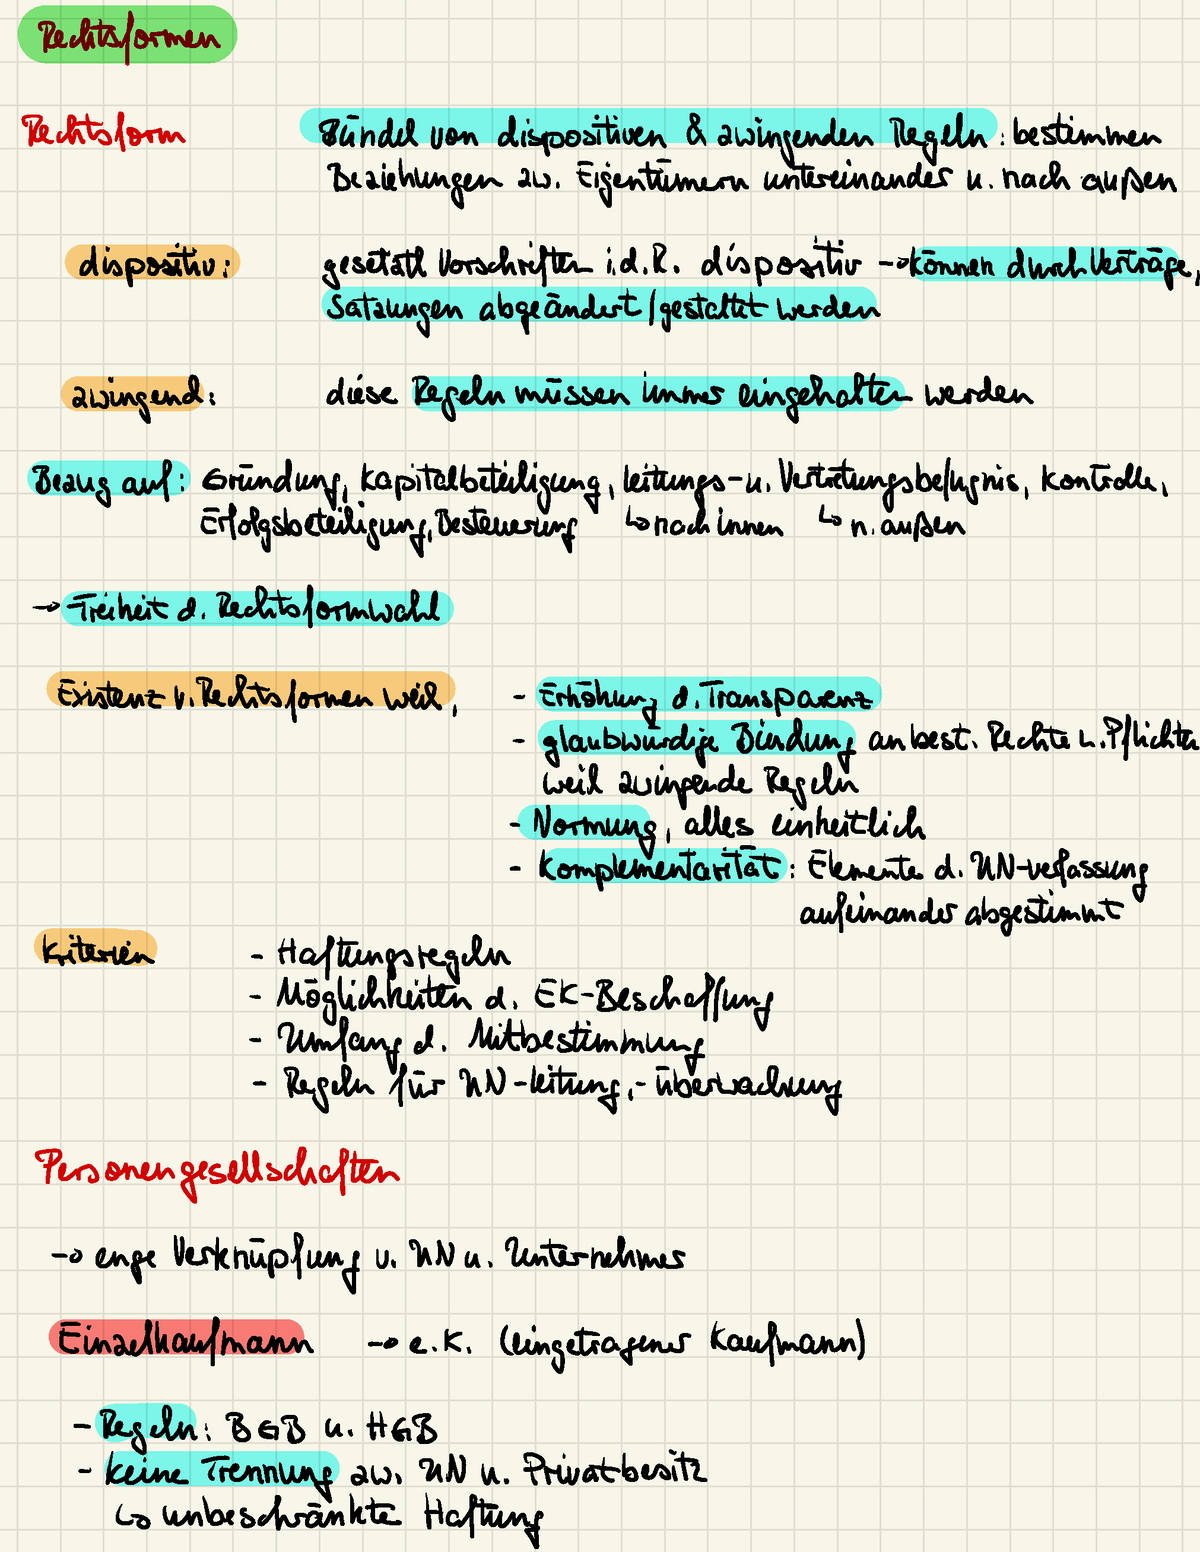 Rechtsformen
Rechtsform Bündel von dispositiven & zwingenden Regeln: bestimmen
Beziehungen zw. Eigentümern untereinander u. nach außen
dispositiv: gesetzl Vorschriften i.d.R. dispositiv → können durch Verträge,
Satzungen abgeändert/gestaltet werden
zwingend: diese Regeln müssen immer eingehalten werden
Bezug auf: Gründung, Kapitalbeteiligung, Leitungs- u. Vertretungsbefugnis, Kontrolle,
Erfolgsbeteiligung, Besteuerung ↳ nach innen ↳ n. außen
→ Freiheit d. Rechtsformwahl
Existenz v. Rechtsformen weil, - Erhöhung d. Transparenz
- glaubwürdige Bindung an best. Rechte u. Pflichten
weil zwingende Regeln
- Normung, alles einheitlich
- Komplementarität: Elemente d. UN-verfassung
aufeinander abgestimmt
Kriterien - Haftungsregeln
- Möglichkeiten d. EK-Beschaffung
- Umfang d. Mitbestimmung
- Regeln für UN-leitung, -überwachung
Personengesellschaften
→ enge Verknüpfung v. UN u. Unternehmer
Einzelkaufmann → e.K. (eingetragener Kaufmann)
- Regeln: BGB u. HGB
- keine Trennung zw. UN u. Privatbesitz
↳ unbeschränkte Haftung